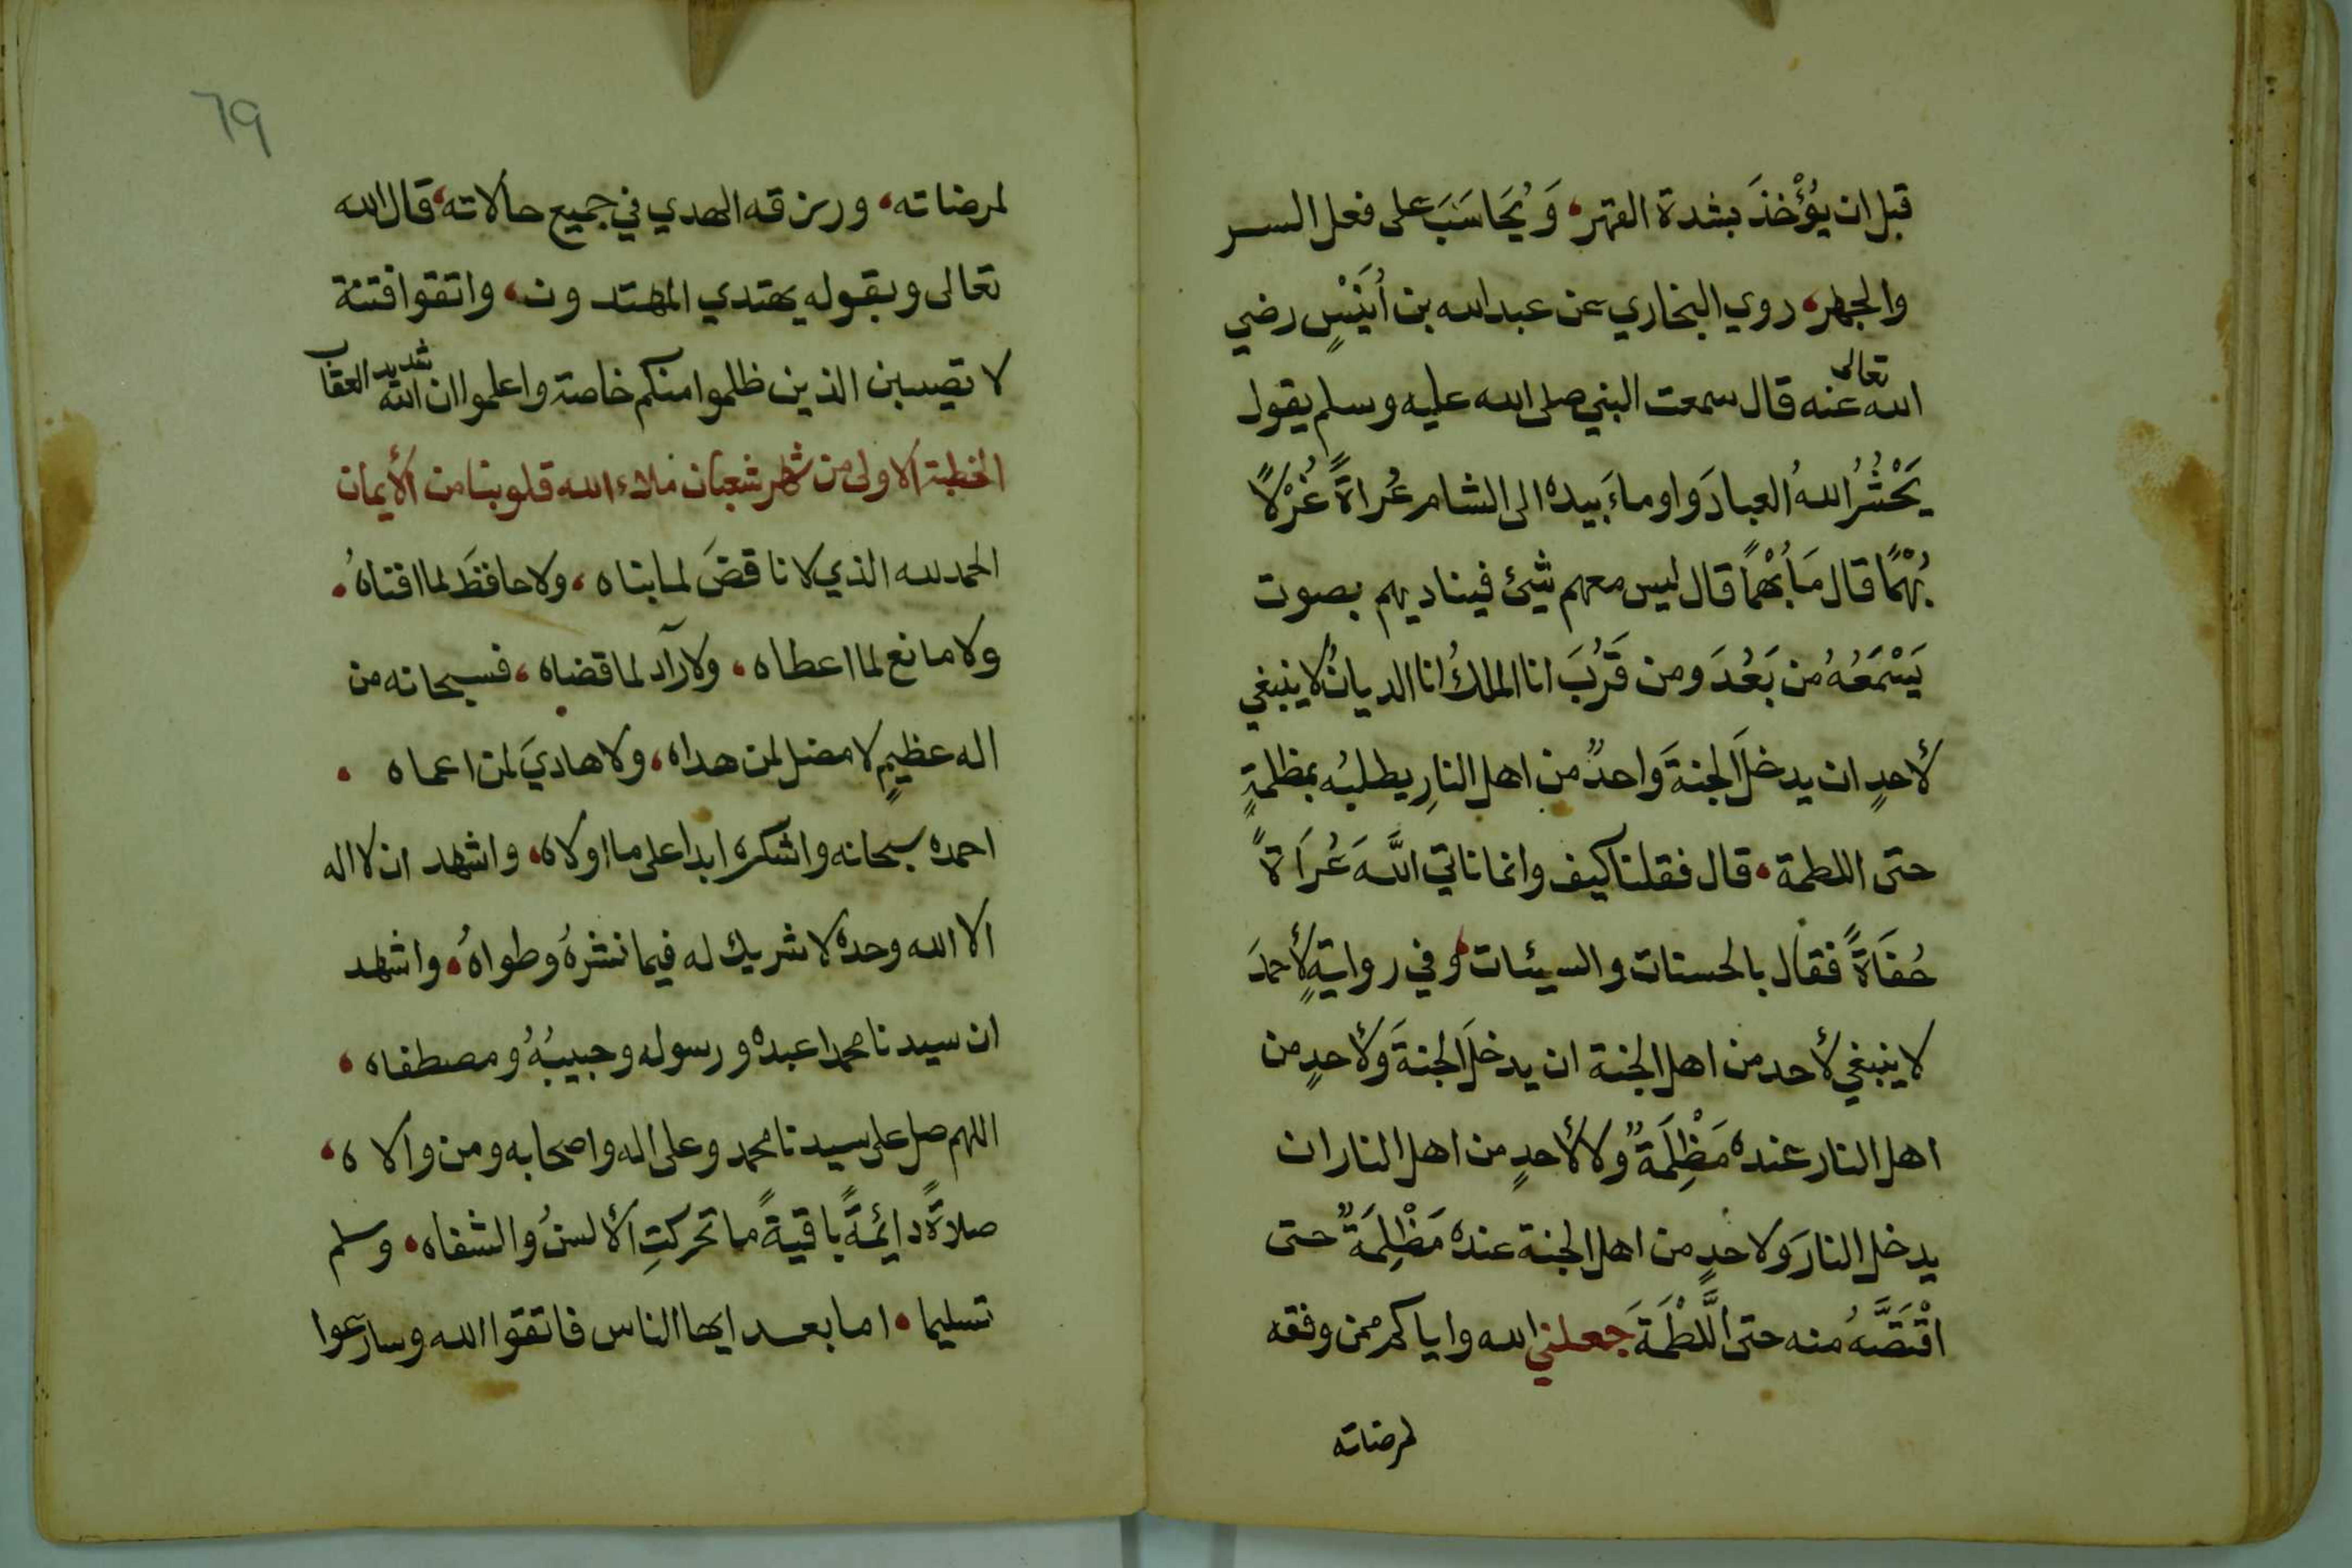 قبل ان يُؤْخذَ بشدة القهر، وَيُحَاسَبَ على فعل السر
والجهر، روي البخاري عن عبدالله بن أُنَيْسٍ رضي
الله تعالى عنه قال سمعت النبي صلى الله عليه وسلم يقول
يَحْشُرُ اللهُ العبادَ واوماءَ بيده الى الشام عُراةً غُرْلاً
بُهْمًا قال مَا بُهْمًا قال ليس معهم شيئ فيناديهم بصوت
يَسْمَعُهُ من بَعُدَ ومن قَرُبَ انا الملكُ انا الديانُ لا ينبغي
لأحدٍ ان يدخلَ الجنةَ واحدٌ من اهل النارِ يطلبُه بمظلمةٍ
حتى اللطمة، قال فقلنا كيف وانما ناتي اللَّهَ عُرَاةً
حُفَاةً فقال بالحسنات والسيئات، وفي روايةٍ لأحمدَ
لا ينبغي لأحد من اهل الجنة ان يدخلَ الجنةَ ولأحدٍ من
اهل النار عنده مَظْلِمَةٌ ولا لأحدٍ من اهل النار ان
يدخل النارَ ولاحدٍ من اهل الجنة عنده مَظْلِمَةٌ حتى
اقْتَصَّهُ منه حتى اللَّطْمَةَ جعلني الله واياكم ممن وفقه
لمرضاته
٦٩
لمرضاته، ورزقه الهدي في جميع حالاته، قال الله
تعالى وبقوله يهتدي المهتدون، واتقوا فتنة
لا تصيبن الذين ظلموا منكم خاصة واعلموا ان الله شديد العقاب
الخطبة الاولى من شهر شعبان ملاء الله قلوبنا من الأيمان
الحمد لله الذي لا ناقضَ لما بناه، ولا حافظَ لما افناهُ،
ولا مانع لما اعطاه، ولا رآد لما قضاه، فسبحانه من
اله عظيمٍ لا مضل لمن هداه، ولا هاديَ لمن اعماه،
احمده سبحانه واشكره ابدا على ما اولاه، واشهد ان لا اله
الا الله وحده لا شريك له فيما نشرهُ وطواهُ، واشهد
ان سيدنا محمدا عبده ورسوله وحبيبُهُ ومصطفاه،
اللهم صل على سيدنا محمد وعلى اله واصحابه ومن والاه،
صلاةً دايئمةً باقيةً ما تحركتِ الألسنُ والشفاه، وسلم
تسليما، اما بعد ايها الناس فاتقوا الله وسارعوا